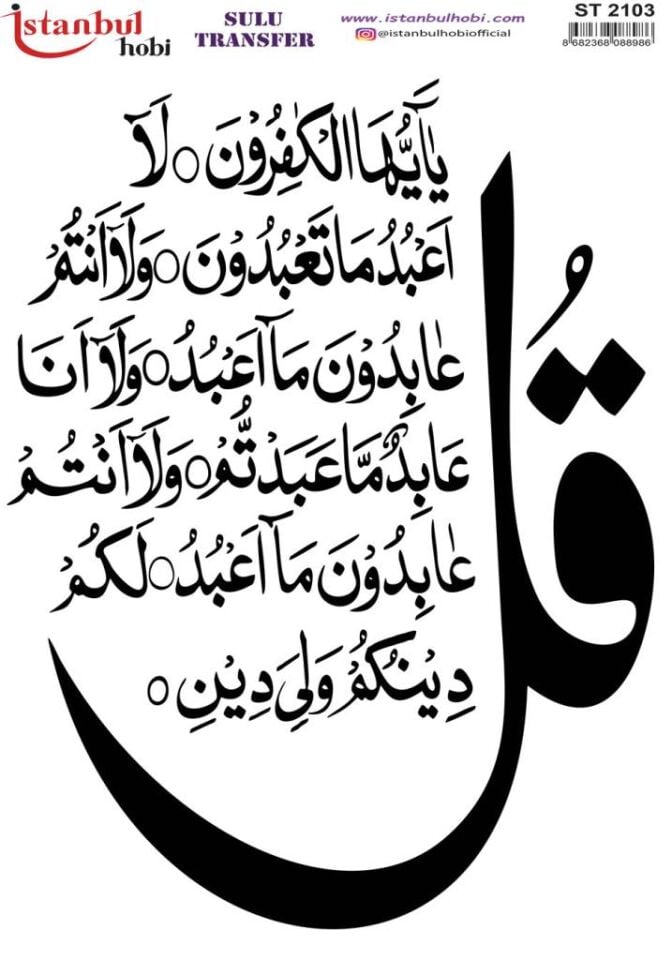 istanbul
hobi
SULU
TRANSFER
www.istanbulhobi.com
@istanbulhobiofficial
ST 2103
8 682368 088986
قُلْ
يٰٓاَيُّهَا الْكٰفِرُوْنَ ○ لَآ
اَعْبُدُ مَا تَعْبُدُوْنَ ○ وَلَآ اَنْتُمْ
عٰبِدُوْنَ مَآ اَعْبُدُ ○ وَلَآ اَنَا
عَابِدٌ مَّا عَبَدْتُّمْ ○ وَلَآ اَنْتُمْ
عٰبِدُوْنَ مَآ اَعْبُدُ ○ لَكُمْ
دِيْنُكُمْ وَلِيَ دِيْنِ ○